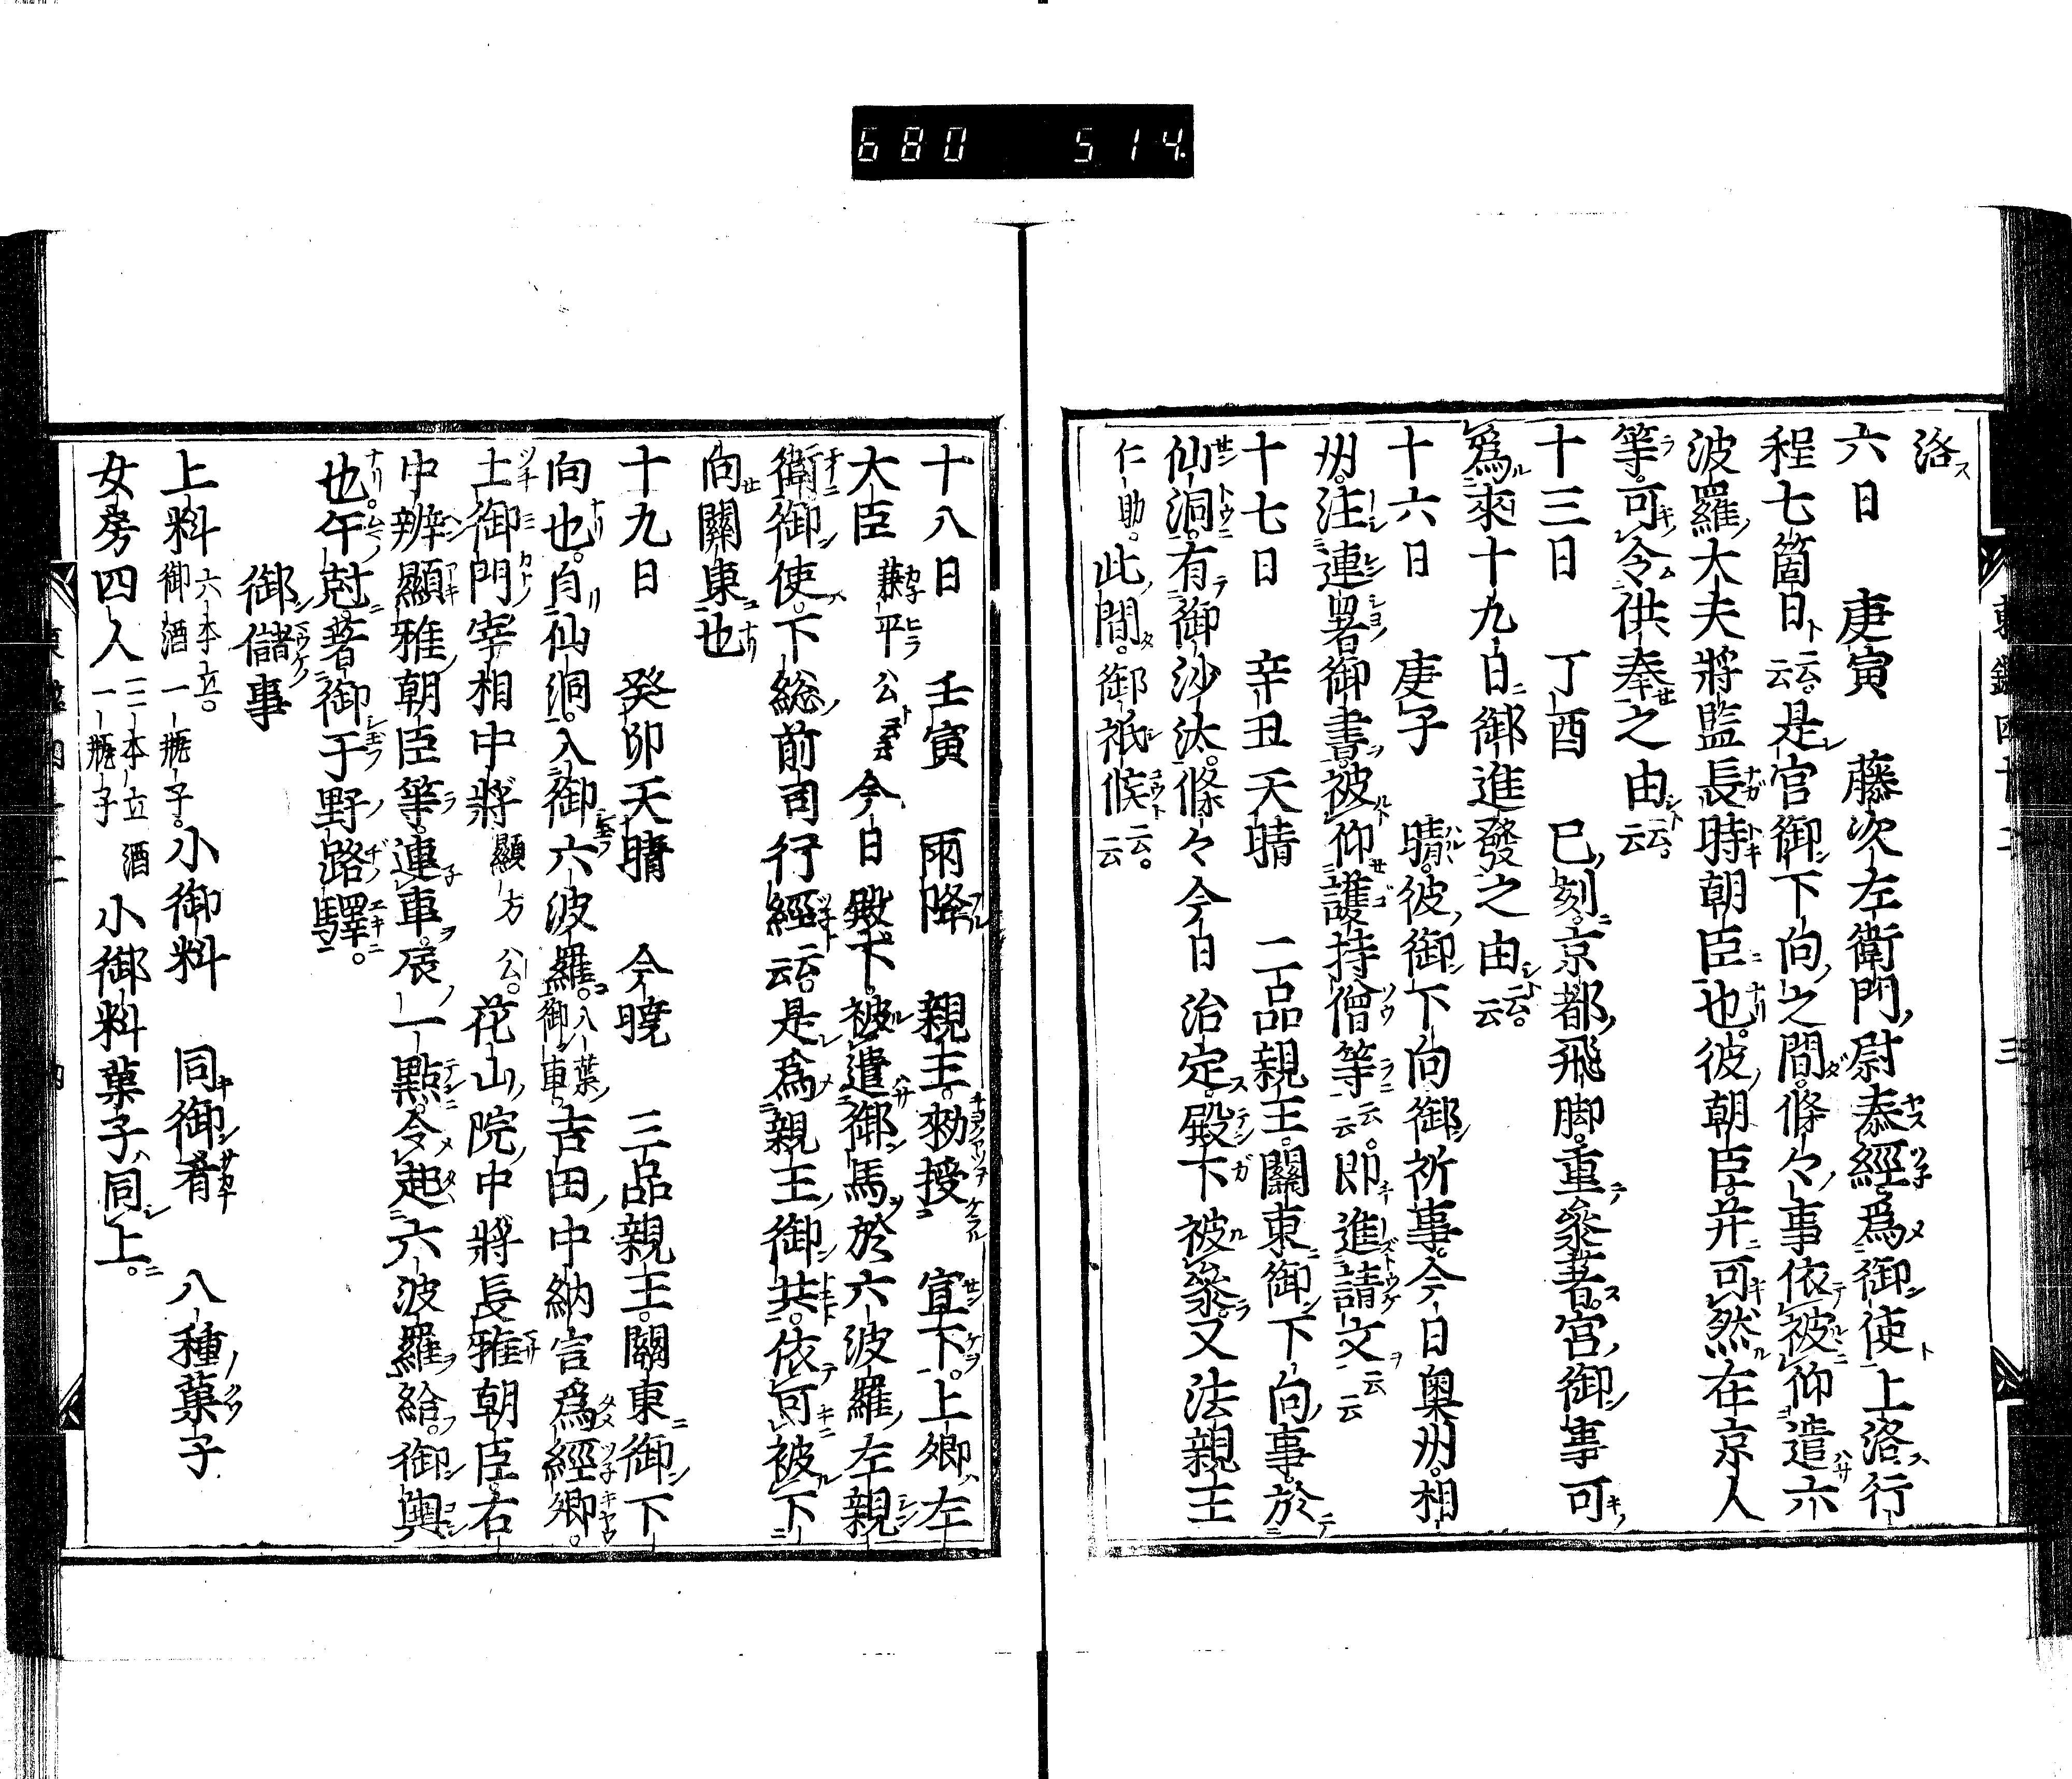 680 514.
洛
六日 庚寅 藤次左衛門尉泰經爲御使上洛行
程七箇日云云是官御下向之間條々事依被仰遣六
波羅大夫將監長時朝臣也彼朝臣并可然在京人
等可令供奉之由云云
十三日 丁酉 巳刻京都飛脚重參著宮御事可
爲來十九日御進發之由云云
十六日 庚子 晴彼御下向御祈事今日奥州相
州注連署御書被仰護持僧等云云即進請文云云
十七日 辛丑天晴 二品親王關東御下向事於
仙洞有御沙汰條々今日治定殿下被參又法親王
仁助此間御祇候云云
十八日 壬寅 雨降 親王勅授 宣下上卿左
大臣 兼平公 今日殿下被遣御馬於六波羅左親
衛御使下総前司行經云云是爲親王御共依可被下
向關東也
十九日 癸卯天晴 今曉 三品親王關東御下
向也自仙洞入御六波羅八葉御車吉田中納言爲經卿
土御門宰相中將 顯方公 花山院中將長雅朝臣右
中辨顯雅朝臣等連車辰一點令起六波羅給御輿
也午尅著御于野路驛
御儲事
上料 六本立御酒一瓶子 小御料 同御肴 八種菓子
女房四人 一二本立一瓶子 酒 小御料菓子同上